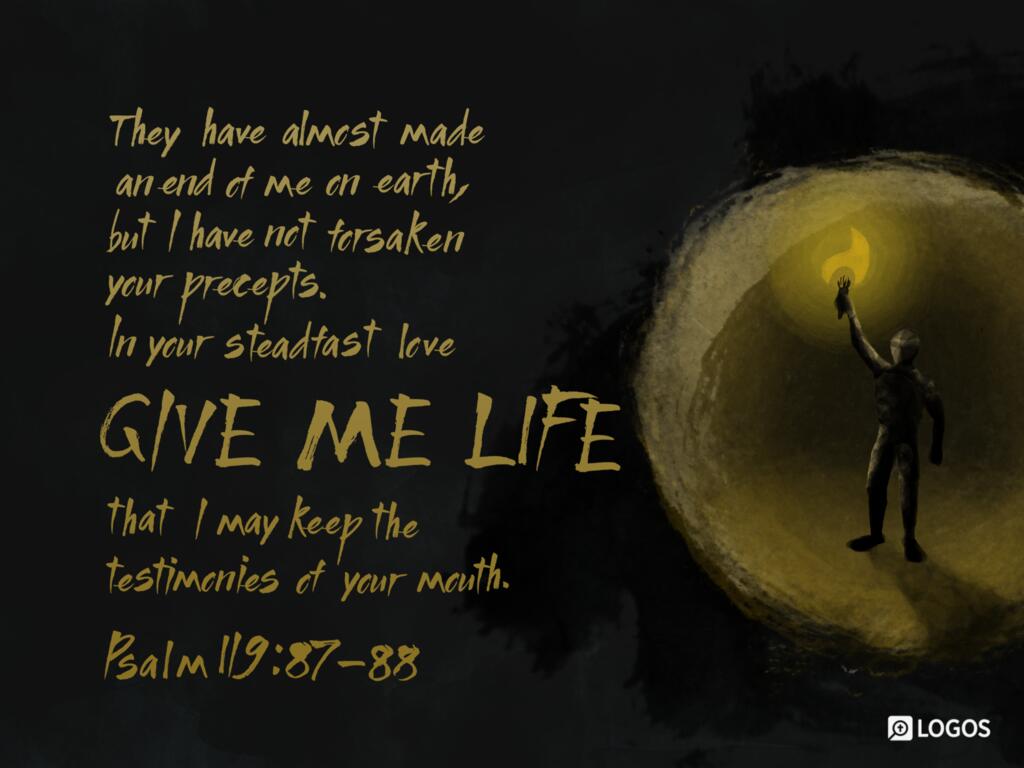 They have almost made
an end of me on earth,
but I have not forsaken
your precepts.
In your steadfast love
GIVE ME LIFE
that I may keep the
testimonies of your mouth.
Psalm 119:87-88
LOGOS